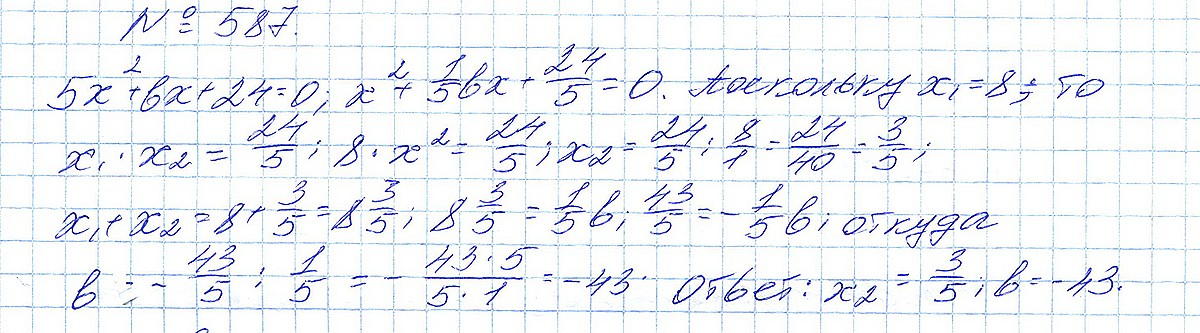 № 587.
5x²+bx+24=0; x²+\frac{1}{5}bx+\frac{24}{5}=0. Поскольку x₁=8; то
x₁·x₂=\frac{24}{5}; 8·x²=\frac{24}{5}; x₂=\frac{24}{5}:\frac{8}{1}=\frac{24}{40}=\frac{3}{5};
x₁+x₂=8+\frac{3}{5}=8\frac{3}{5}; 8\frac{3}{5}=\frac{1}{5}b; \frac{43}{5}=-\frac{1}{5}b; откуда
b=-\frac{43}{5}:\frac{1}{5}=-\frac{43·5}{5·1}=-43. Ответ: x₂=\frac{3}{5}; b=-43.